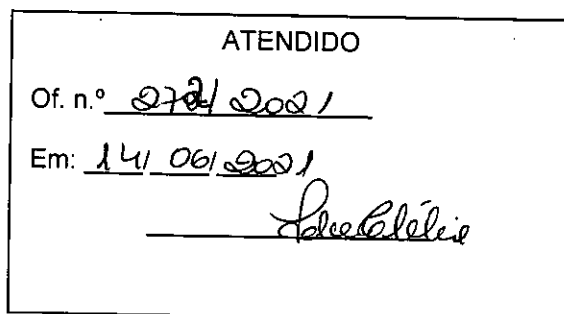 ATENDIDO
Of. n.º 272/2021
Em: 14/06/2021